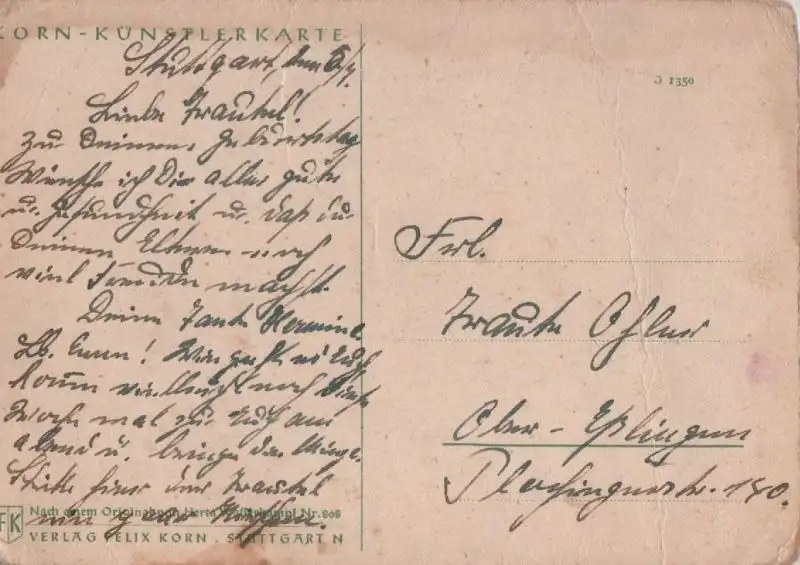 KORN-KÜNSTLERKARTE
Stuttgart, den
Liebe Trautel!
Zu Deinem Geburtstag
Wünsche ich Dir alles gute
u. Gesundheit u. daß du
Deinen Eltern noch
viel Freuden machst.
Deine Tante Hermine
Lb. Emm! Wie geht es Euch
komm vielleicht noch diese
Woche mal zu Euch am
abend u. bringe die
hier der Trautel
ein paar
FK
Nach einem Original von Herta Nr. 808
VERLAG FELIX KORN . STUTTGART N
1350
Frl.
Traute Ohler
Ober-Eßlingen
Plochingerstr. 140.